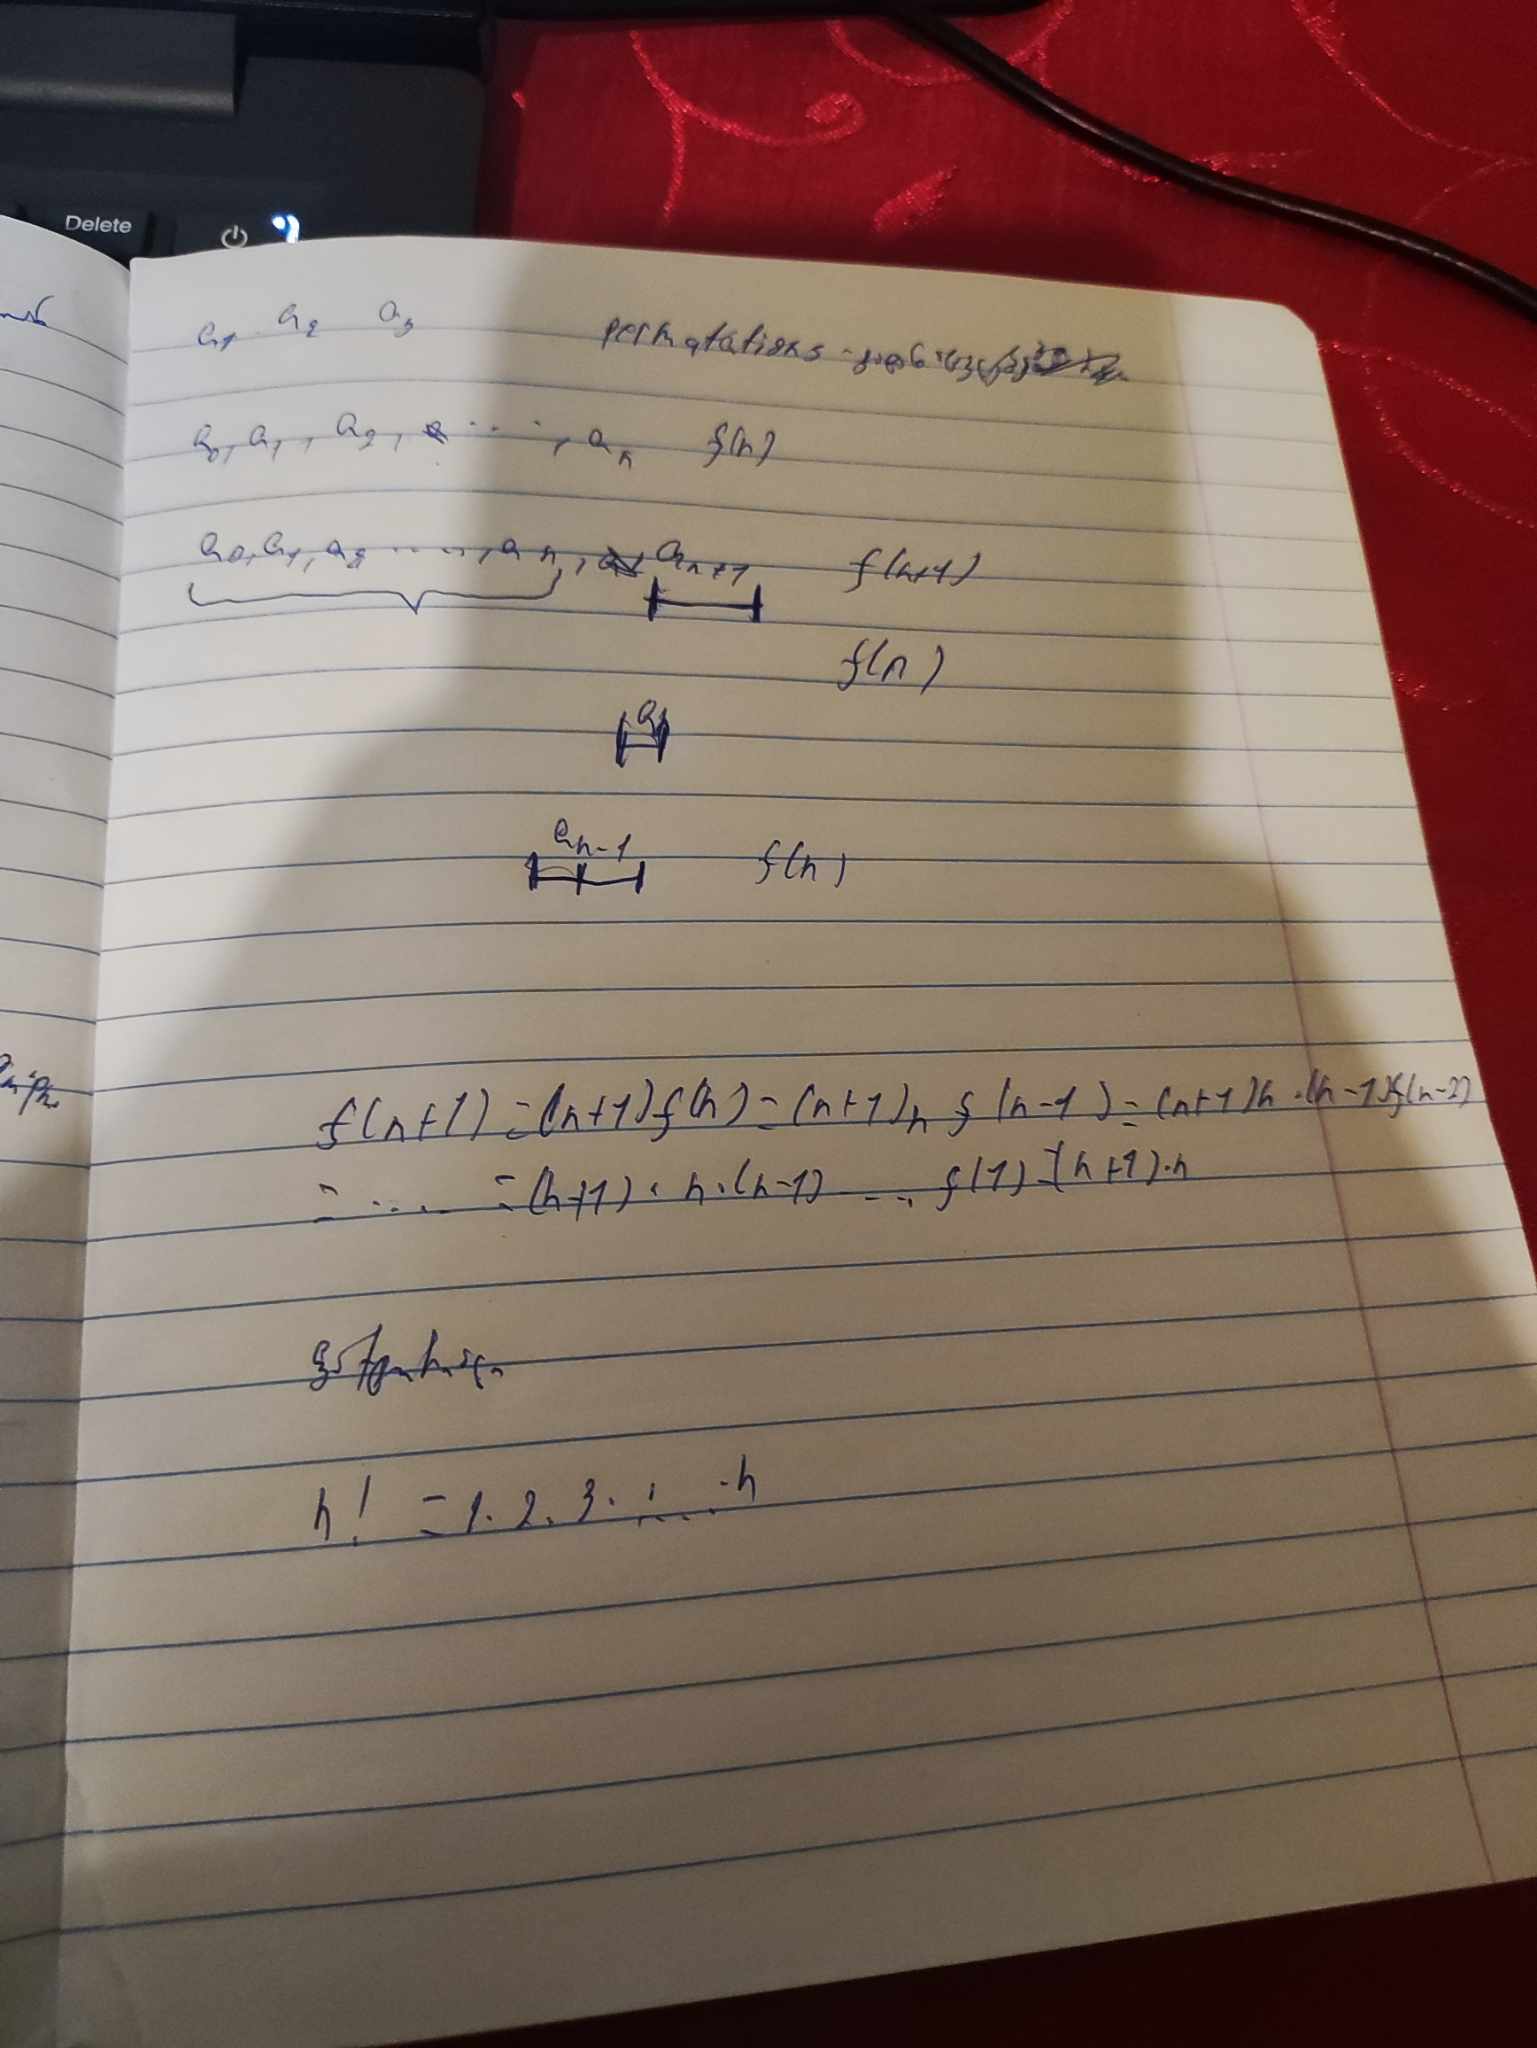 Delete
a₁ a₂ a₃ permutations -
a₀, a₁, a₂, ...., aₙ f(n)
a₀, a₁, a₂ ....., aₙ, aₙ₊₁ f(n+1)
f(n)
a
aₙ₋₁ f(n)
f(n+1) = (n+1) f(n) = (n+1) n f(n-1) = (n+1) n · (n-1) f(n-2)
= ..... = (n+1) · n · (n-1) .... f(1) = (n+1) · n
n! = 1 · 2 · 3 · ..... · n